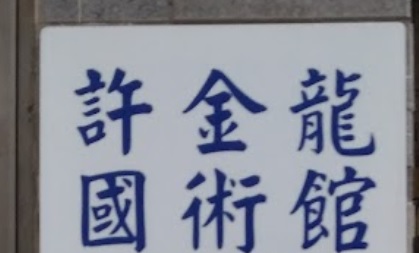 許金龍
國術館